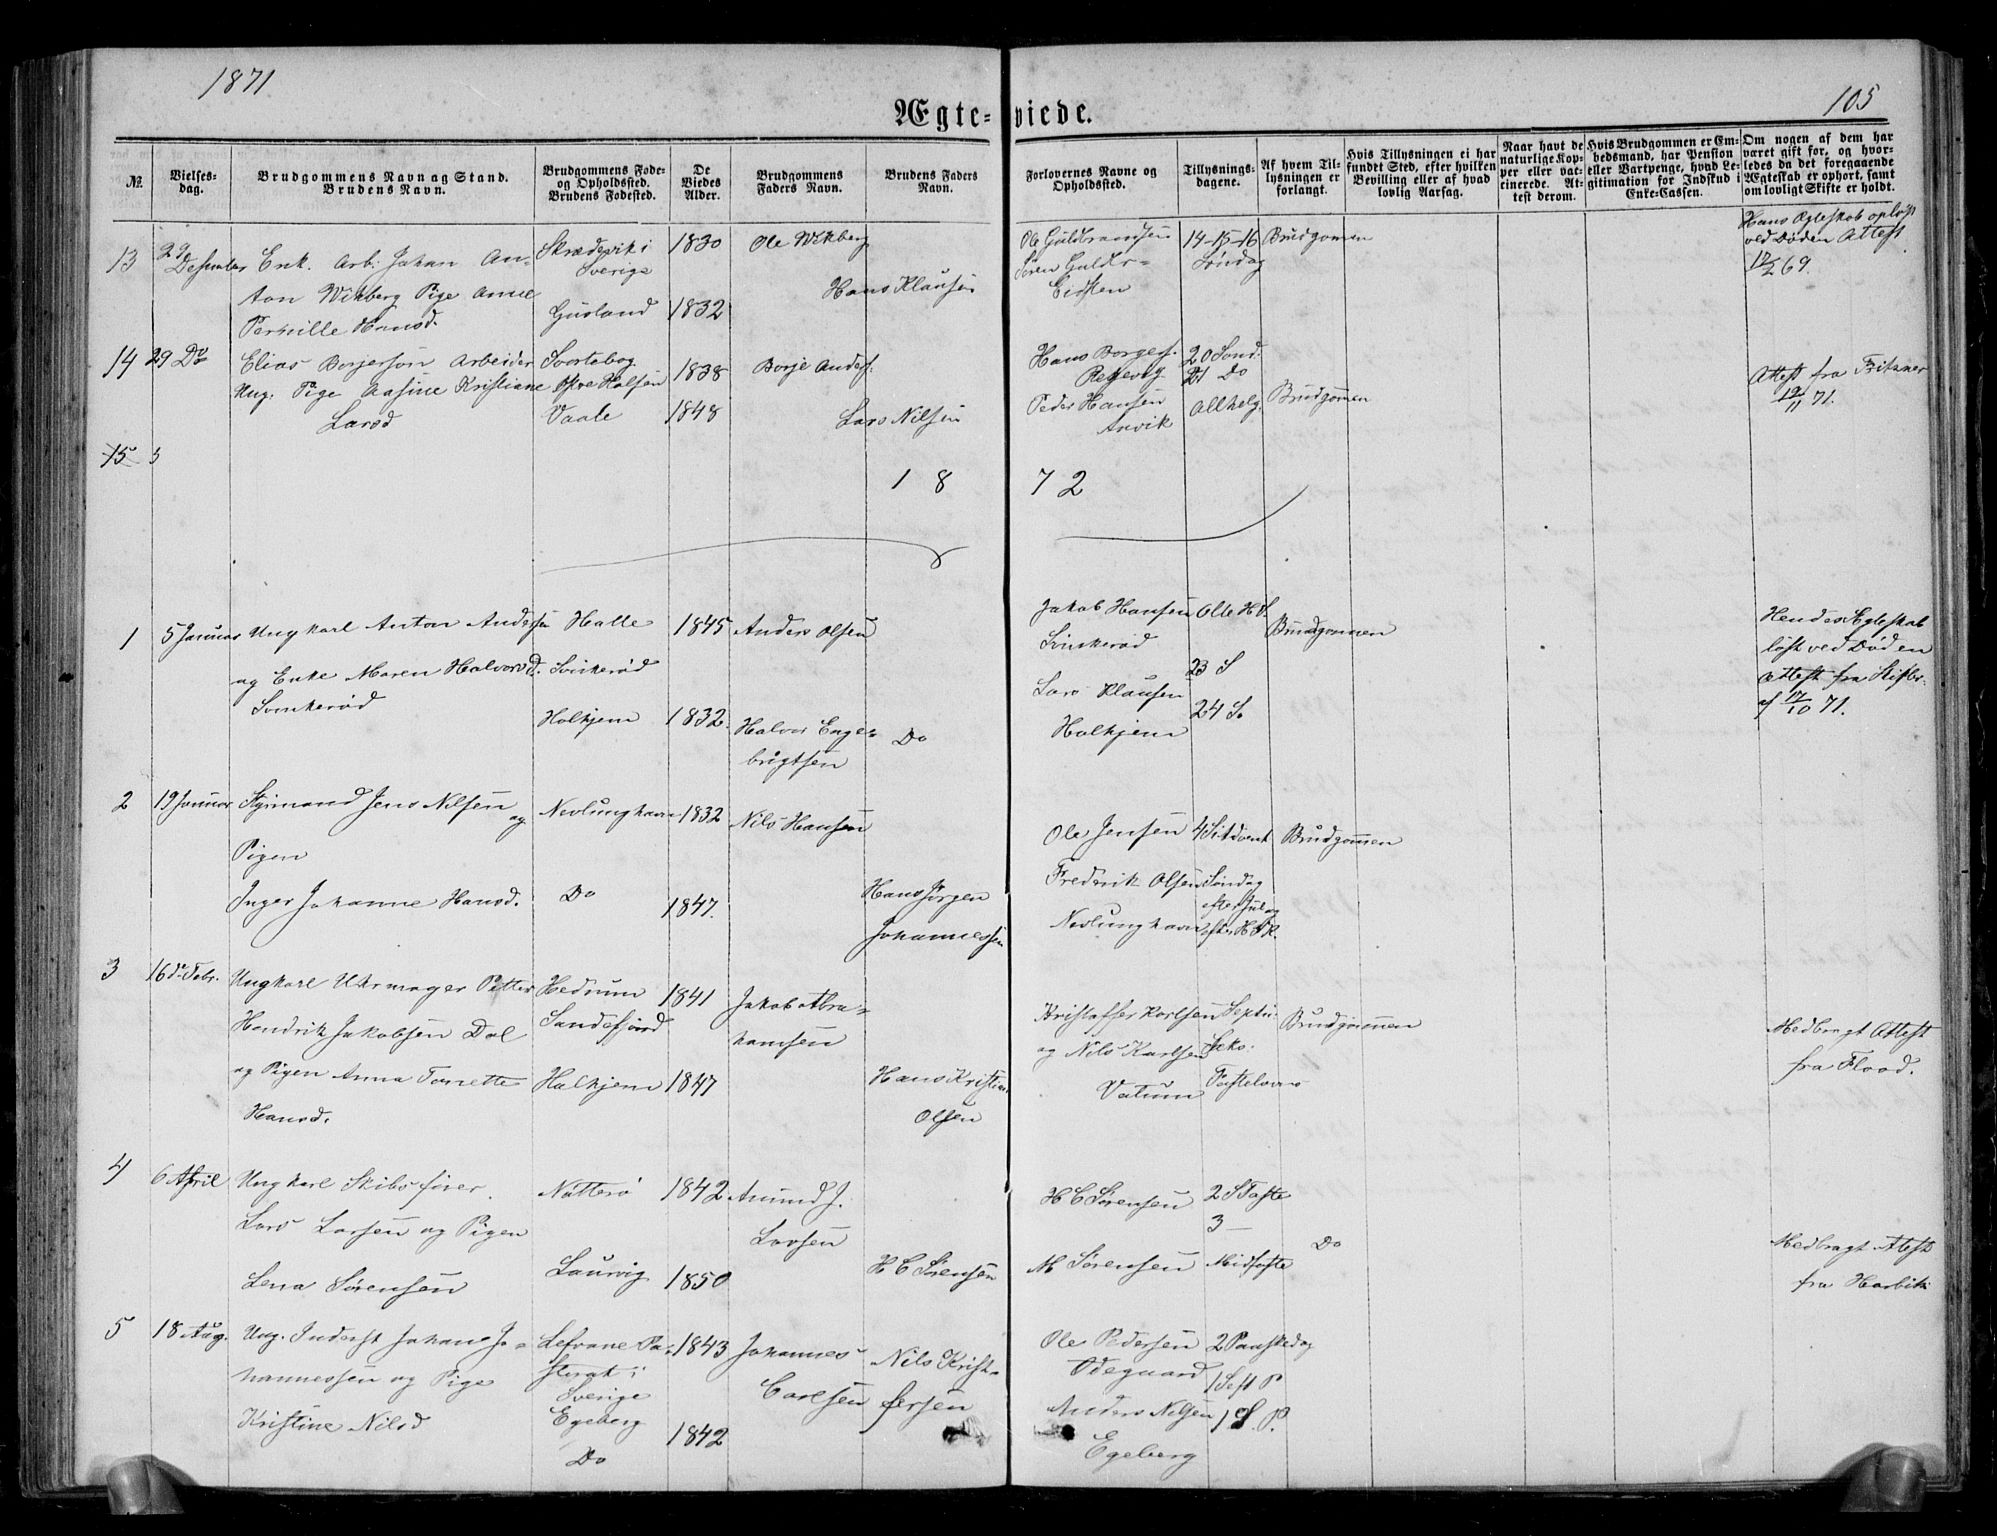 1871
105
Ægte-viede.
№.
Vielses-
dag.
Brudgommens Navn og Stand.
Brudens Navn.
Brudgommens Føde-
og Opholdssted.
Brudens Fødested.
De
Viedes
Alder.
Brudgommens
Faders Navn.
Brudens Faders
Navn.
Forlovernes Navne og
Opholdssted.
Tillysnings-
dagene.
Af hvem Til-
lysningen er
forlangt.
Hvis Tillysningen ei har
fundet Sted, efter hvilken
Bevilling eller af hvad
lovlig Aarsag.
Naar havt de
naturlige Kop-
per eller vac-
cinerede. At-
test derom.
Hvis Brudgommen er Em-
bedsmand, har Pension
eller Vartpenge, hvad Le-
gitimation for Indskud i
Enke-Cassen.
Om nogen af dem har
været gift før, og hvor-
ledes da det foregaaende
Ægteskab er ophørt, samt
om lovligt Skifte er holdt.
13
29
Desember
Enk. Arb. Johan An-
ton Wikberg Pige Anne
Pernille Hansd.
Skredsvik i
Sverige
Gusland
1830
1832
Ole Wikberg
Hans Klausen
Ole Guldbrandsen
Søren Guldbr-
Eidsten
14-15-16
Søndag
Brudgomen
Hans Ægteskab opløst
ved Døden Attest
12/2 69.
14
29 Do
Elias Borjesøn Arbeider
Ung. Pige Aasine Kristiane
Larsd
Svarteborg
Østre Halsen
Vaale
1838
1848
Borje Anders.
Lars Nilsen
Hans Borges.
Rekkevig
Peder Hansen
Anvik
20 Sønd.
21 Do
Allhelg.
Brudgomen
Attest fra Fritzner
12/11 71.
15
1 8 7 2
1
5 Januar
Ungkarl Anton Andersen
og Enke Maren Halvorsd.
Svinkerød
Halle
Svinkerød
Holkjem
1845
1832.
Anders Olsen
Halvor Enge-
brigtsen
Do
Jakob Hansen
Svinkerød
Lars Klausen
Holkjem
Alle H S.
23 S
24 S.
Brudgommen
Hendes Ægteskab
løst ved Døden
Attest fra Skifter.
af 17/10 71.
2
19 Januar
Styrmand Jens Nilsen
og
Pigen
Inger Johanne Hansd.
Nevlunghavn
Do
1832
1847.
Nils Hansen
Hans Jørgen
Johannessen
Ole Jensen
Fredrik Olsen
Nevlunghavn
4 S i Advent
Søndag
efter Jul og
efter H 3 K.
Brudgommen
3
16de Febr.
Ungkarl Uhrmager Petter
Hendrik Jakobsen Dal
og Pigen Anna Tonette
Hansd.
Hedrum
Sandefjord
Holkjem
1841
1847
Jakob Abra-
hamsen
Hans Kristian
Olsen
Kristoffer Karlsen
og Nils Karlsen
Vatum
Septu-
Seks.
Fastelavns
Brudgommen
Medbragt Attest
fra Flood.
4
6 April
Ungkarl Skibsfører.
Lars Larsen og Pigen
Lena Sørensen
Nøtterø
Laurvig
1842
1850
Amund J.
Larsen
H C Sørensen
H C Sørensen
M Sørensen
2 S Faste
3 —
Midfaste
Do
Medbragt Attest
fra
5
18 Aug.
Ung. Inderst Johan Jo-
hannessen og Pige
Kristine Nilsd
Pa-
storat i
Sverige
Egeberg
Do
1843
1842
Johannes
Carlsen
Nils Krist-
fersen
Ole Pedersen
Ødegaard
Anders Nilsen
Egeberg
2 Paaskedag
1 S eft P
1 S. P.